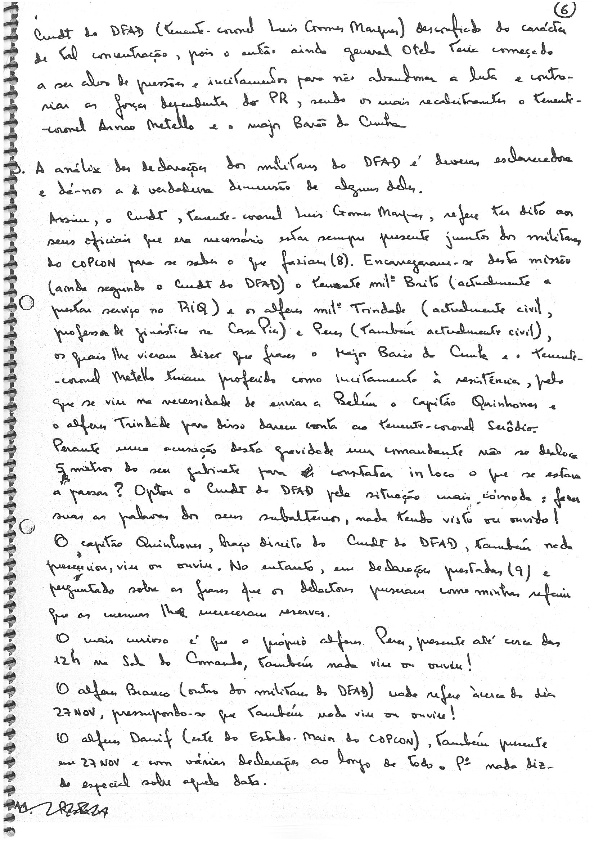 6
Cmdt do DFAD (tenente-coronel Luis Gomes Marques) desconfiado do carácter
de tal concentração, pois o então ainda general Otelo teria começado
a ser alvo de pressões e incitamentos para não abandonar a luta e contra-
riar as forças dependentes do PR, sendo os mais recalcitrantes o tenente-
-coronel Arnao Metello e o major Barão da Cunha
3. A análise das declarações dos militares do DFAD é deveras esclarecedora
e dá-nos a verdadeira dimensão de alguns deles.
Assim, o Cmdt, tenente-coronel Luis Gomes Marques, refere ter dito aos
seus oficiais que era necessário estar sempre presente juntos dos militares
do COPCON para se saber o que faziam (8). Encarregaram-se desta missão
(ainda segundo o Cmdt do DFAD) o tenente milº Brito (actualmente a
prestar serviço no RIQ) e os alferes milº Trindade (actualmente civil,
professor de ginástica na Casa Pia) e Peres (também actualmente civil),
os quais lhe vieram dizer que frases o Major Barão da Cunha e o tenente-
-coronel Metello teriam proferido como incitamento à resistência, pelo
que se viu na necessidade de enviar a Belém o capitão Quinhones e
o alferes Trindade para disso darem conta ao tenente-coronel Serôdio.
Perante uma acusação desta gravidade um comandante não se desloca
5 metros do seu gabinete para constatar in loco o que se estava
a passar? Optou o Cmdt do DFAD pela situação mais cómoda: fazer
suas as palavras dos seus subalternos, nada tendo visto ou ouvido!
O capitão Quinhones, braço direito do Cmdt do DFAD, também nada
presenciou, viu ou ouviu. No entanto, em declarações prestadas (9) e
perguntado sobre as frases que os delactores puseram como minhas referiu
que as mesmas lhe mereceram reservas.
O mais curioso é que o próprio alferes Peres, presente até cerca das
12h na Sala do Comando, também nada viu ou ouviu!
O alferes Branco (outro dos militares do DFAD) nada refere àcerca do dia
27 NOV, pressupondo-se que também nada viu ou ouviu!
O alferes Danif (este do Estado-Maior do COPCON), também presente
em 27 NOV e com várias declarações ao longo de todo o Pº nada diz
de especial sobre aquela data.